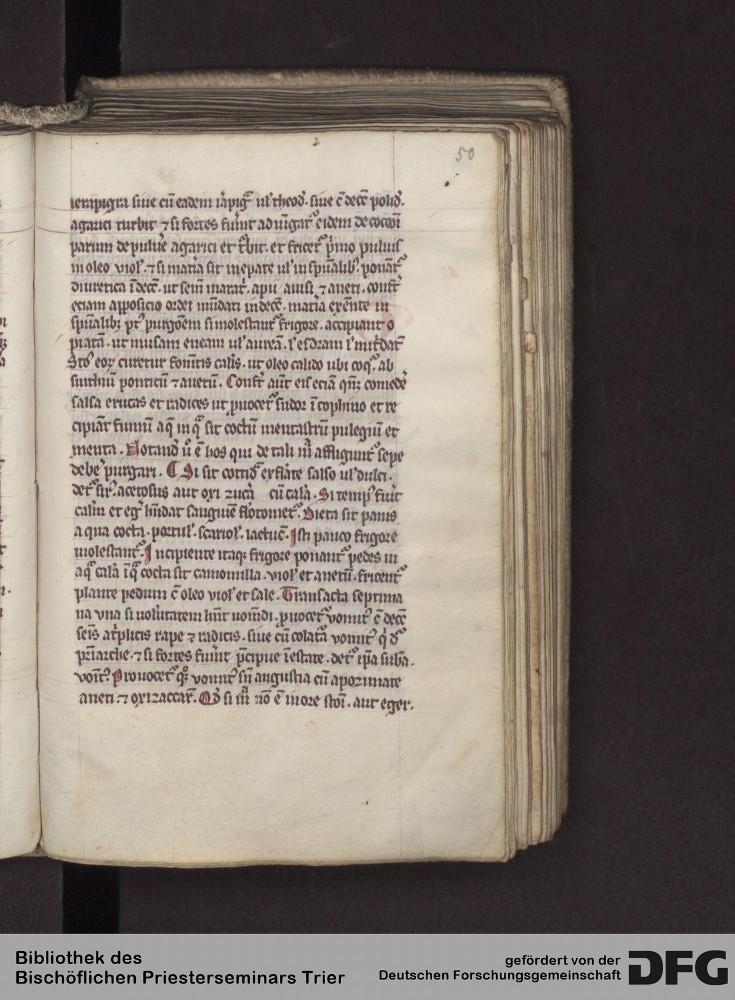 50
ierapigra siue cū eadem iāpigᷓ ul' theod̄. siue c̄ decc̄ polid̄.
agarici turbit ⁊ si fortes fuīnt ad uīgatᷣ eidem de coctōī
parum de puluē agarici et t̄bit. et fricetᷣ pⁱmo puluis
in oleo viol'. ⁊ si mat̄ia sit in epate ul' in sp̄ualib;. ponātᷣ
diuretica ī decc̄. ut sem̄ marat̄. apii anisi. ⁊ aneti. confert̄
eciam apposicio ordei mūdati in decc̄. mat̄ia exēnte in
sp̄ualib; pᷤ purgōem si molestantᷣ frigore. accipiant o
piatā. ut musam eneam ul' aureā. l' esdram l' mitᵈdatᷤ
Stoᷤ eoꝝ curetur fomētis calīs. ut oleo calido ubi coqᷣ. ab
sinthiū ponticū ⁊ anetū. Confert̄ aūt eis eciā qn̄q; comedē
salsa erucas et radices ut ꝓuocetᷣ sudor ī cophino et re
cipiāt fumū aq̄ in qᷓ sit coctū mentastrū pulegiū et
menta. Notand̄ ū ē hos qui de tali mᷓ affligūtᷣ sepe
debē purgari. ¶ Si sit cottid̄ ex flāte salso ul' dulci.
detᷣ sirᷣ. acetosus aut oxi zucᷓa cū calᷓa. Si tempᷤ fuīt
calm̄ et egᷣ hn̄dat sanguīe flotometᷣ. Dieta sit panis
a qua cocta. portul'. scariol'. lactuc̄. Isti pauco frigore
molestantᷣ. Incipiente itaq; frigore ponantᷣ pedes in
aqᷓ calᷓa ī qᷓ cocta sit camomilla. viol' et anetū. fricentᷣ
plante pedum c̄ oleo viol' et sale. Transacta septima
na vna si uolūtatem hn̄t uom̄di. ꝓuocetᷣ vomitᷤ c̄ decc̄
sem̄is at̄plicis rape ⁊ radicis. siue cū colatᷓa vomitᷤ q̄ dᷣ
pat̄iarche. ⁊ si fortes fuīnt p̄cipue ī estate. detᷣ ip̄a sub̄a.
vomᷤ. Prouocetᷣ qᷤ; vomitᷤ sn̄ angustia cū apozimate
aneti. ⁊ oxizaccar̄. Qd̄ si mᷓ nō ē in ore stoī. aut eger.
Bibliothek des
Bischöflichen Priesterseminars Trier
gefördert von der
Deutschen Forschungsgemeinschaft
DFG